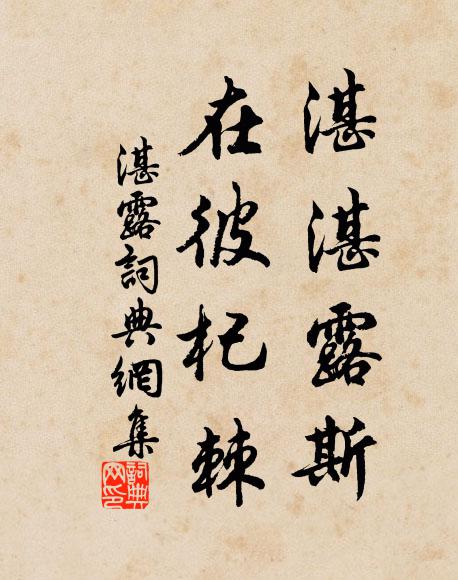 湛湛露斯
在彼杞棘
湛露詞典網集
詞典網印